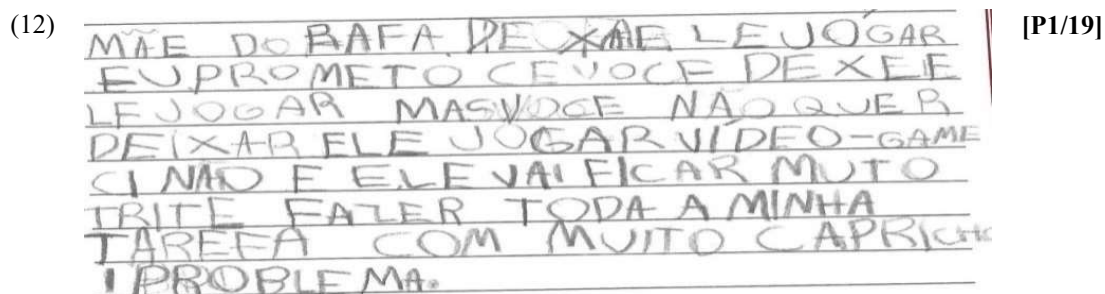 (12) [P1/19]
MÃE DO RAFA DEOXAE LE JÓGAR
EU PROMETO CE VOCE DEXE E
LE JOGAR MAS VOCE NÃO QUER
DEIXAR ELE JOGAR VÍDEO-GAME
CI NÃO E ELE VAI FICAR MUTO
TRITE FAZER TODA A MINHA
TAREFA COM MUITO CAPRICHO
I PROBLEMA.